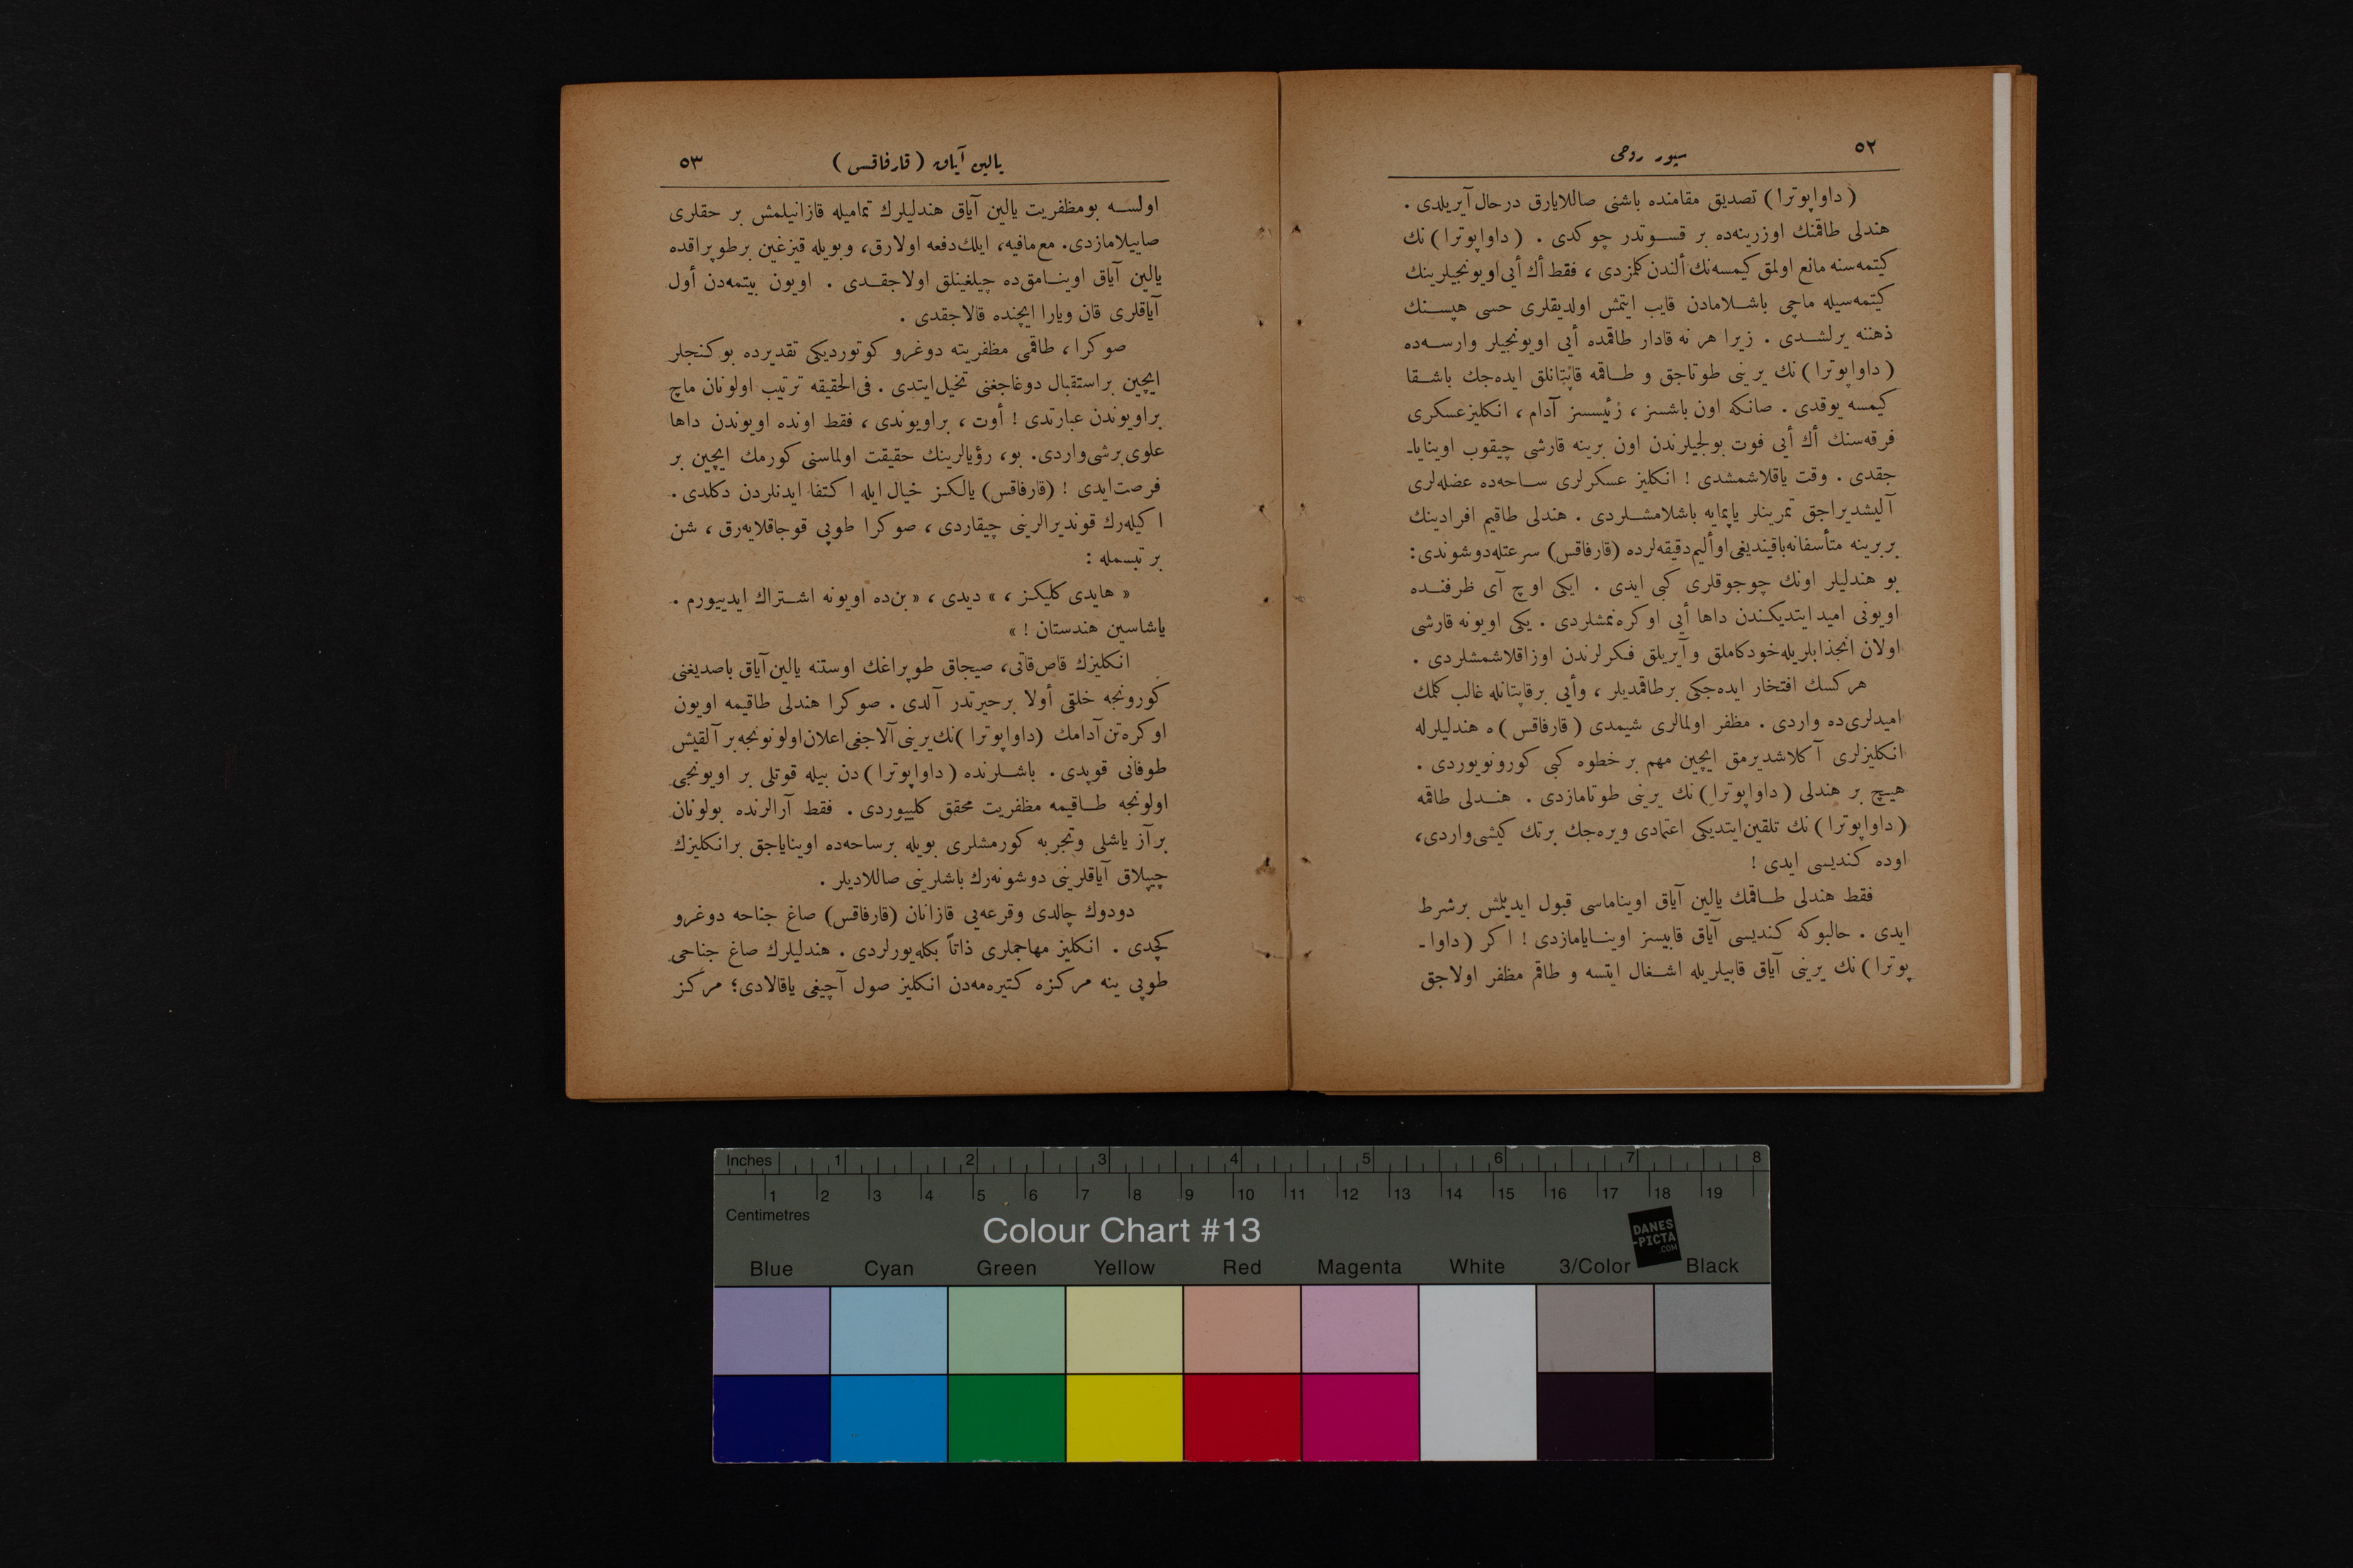 ٥٢
سپور روحی
(داوا پوترا) تصدیق مقامنده باشنی صاللایارق درحال آیریلدی .
هندلی طاقمنك اوزرینه‌ده بر قســوتدر چوكدی . (داوا پوترا) نك
كیتمه‌سنه مانع اولمق كیمسه‌نك ألندن كلمزدی ، فقط أك أیی اویونجیلرینك
كیتمه‌سیله ماچی باشــلامادن قایب ایتمش اولدیقلری حسی هپســنك
ذهننه یرلشــدی . زیرا هر نه قادار طاقمده أیی اویونجیلر وارســه‌ده
(داوا پوترا) نك یرینی طوتاجق و طــاقمه قاپتانلق ایده‌جك باشــقا
كیمسه یوقدی . صانكه اون باشسز ، رئیسسز آدام ، انكلیز عسكری
فرقه‌سنك أك أیی فوت بولجیلرندن اون برینه قارشی چیقوب اوینایا-
جقدی . وقت یاقلاشمشدی ! انكلیز عسكرلری ســاحه‌ده عضله‌لری
آلیشدیراجق تمرینلر یاپمایه باشلامشــلردی . هندلی طاقیم افرادینك
بربرینه متأسفانه باقیندیغی او ألیم دقیقه‌لرده (قارفاقس) سرعتله دوشوندی :
بو هندلیلر اونك چوجوقلری كبی ایدی . ایكی اوچ آی ظرفنــده
اویونی امید ایتدیكندن داها أیی اوكره‌نمشلردی . یكی اویونه قارشی
اولان انجذابلریله خودكاملق و آیریلق فكرلرندن اوزاقلاشمشلردی .
هركسك افتخار ایده‌جكی بر طاقمدیلر ، وأیی بر قاپتانله غالب كلمك
امیدلری‌ده واردی . مظفر اولمالری شیمدی (قارفاقس) ه هندلیلرله
انكلیزلری آكلاشدیرمق ایچین مهم بر خطوه كبی كورونویوردی .
هیچ بر هندلی (داوا پوترا) نك یرینی طوتامازدی . هنــدلی طاقمه
(داوا پوترا) نك تلقین ایتدیكی اعتمادی ویره‌جك برتك كیشی واردی ،
اوده كندیسی ایدی !
فقط هندلی طــاقمك یالین آیاق اویناماسی قبول ایدیلمش برشرط
ایدی . حالبوكه كندیسی آیاق قابیسز اوینــایامازدی ! اكر (داوا -
پوترا) نك یرینی آیاق قابیلریله اشــغال ایتسه و طاقم مظفر اولاجق
یالین آیاق (قارفاقس)
٥٣
اولســه بو مظفریت یالین آیاق هندلیلرك تمامیله قازانیلمش بر حقلری
صاییلامازدی. مع‌مافیه، ایلك دفعه اولارق، و بویله قیزغین بر طوپراقده
یالین آیاق اوینــامق‌ده چیلغینلق اولاجقــدی . اویون بیتمه‌دن أول
آیاقلری قان و یارا ایچنده قالاجقدی .
صوكرا ، طاقمی مظفریته دوغرو كوتوردیكی تقدیرده بو كنجلر
ایچین بر استقبال دوغاجغنی تخیل ایتدی . فی‌الحقیقه ترتیب اولونان ماچ
بر اویوندن عبارتدی ! أوت ، بر اویوندی ، فقط اونده اویوندن داها
علوی برشی واردی. بو، رؤیالرینك حقیقت اولماسنی كورمك ایچین بر
فرصت ایدی ! (قارفاقس) یالكز خیال ایله اكتفا ایدنلردن دكلدی .
اكیله‌رك قوندیرالرینی چیقاردی ، صوكرا طوپی قوجاقلایه‌رق ، شن
بر تبسمله :
« هایدی كلیكز ، » دیدی ، « بن‌ده اویونه اشــتراك ایدییورم .
یاشاسین هندستان ! »
انكلیزك قاص‌قاتی، صیجاق طوپراغك اوستنه یالین آیاق باصدیغنی
كورونجه خلقی أولا بر حیرتدر آلدی . صوكرا هندلی طاقیمه اویون
اوكره‌تن آدامك (داوا پوترا) نك یرینی آلاجغی اعلان اولونونجه بر آلقیش
طوفانی قوپدی . باشــلرنده (داوا پوترا) دن بیله قوتلی بر اویونجی
اولونجه طــاقیمه مظفریت محقق كلییوردی . فقط آرالرنده بولونان
بر آز یاشلی و تجربه كورمشلری بویله بر ساحه‌ده اوینایاجق بر انكلیزك
چیپلاق آیاقلرینی دوشونه‌رك باشلرینی صاللادیلر .
دودوك چالدی و قرعه‌یی قازانان (قارفاقس) صاغ جناحه دوغرو
كچدی . انكلیز مهاجملری ذاتاً بكله‌یورلردی . هندلیلرك صاغ جناحی
طوپی ینه مركزه كتیره‌مه‌دن انكلیز صول آچیغی یاقالادی؛ مركز
Inches 1 2 3 4 5 6 7 8
1 2 3 4 5 6 7 8 9 10 11 12 13 14 15 16 17 18 19
Centimetres
Colour Chart #13
DANES
-PICTA
.COM
Blue Cyan Green Yellow Red Magenta White 3/Color Black